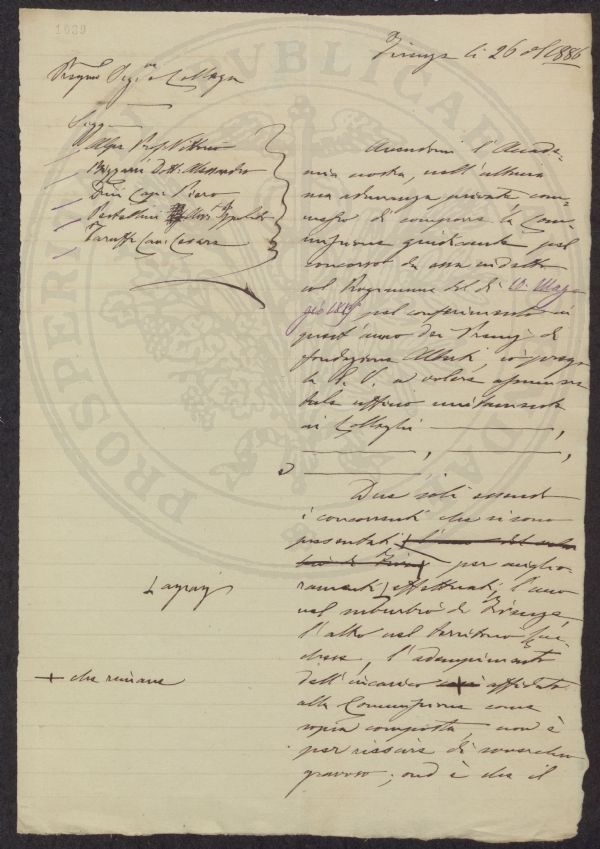 1089
Firenze li 26 8 1886
Pregmo Sigre e Collega
Alpe Prof. Vittorio
Bizzarri Dott. Alessandro
Cav. Piero
Pestellini Ippolito
Taruffi Cav. Cesare
Avendomi l'Accade-
mia nostra, nell'ultima
sua adunanza privata, com-
messo di comporre la Com-
missione giudicante pel
concorso da essa indetto
col Programma del dì 11 Mag-
gio pel conferimento in
quest'anno dei Premj di
fondazione Alberti, io prego
la S. V. a volere assumere
tale ufficio unitamente
ai Colleghi
Due soli essendo
i concorrenti che si sono
presentati per miglio-
ramenti effettuati, l'uno
nel suburbio di Firenze,
l'altro nel territorio
l'adempimento
dell'incarico affidato
alla Commissione come
sopra composta, non è
per riescire di soverchio
gravoso; ond'è che il
+ che rimane
PROSPERITATI PUBLICAE